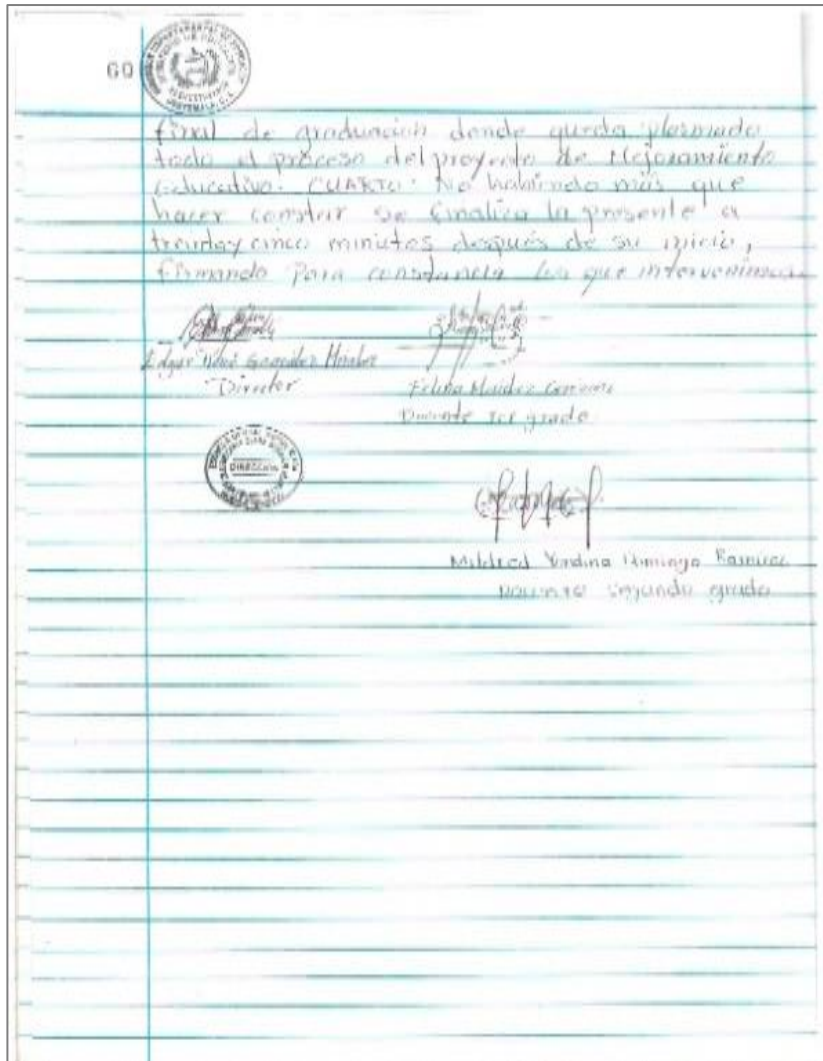 60
final de graduación donde queda plasmado
todo el proceso del proyecto de Mejoramiento
Educativo. CUARTO: No habiendo más que
hacer constar se finaliza la presente a
treinta y cinco minutos después de su inicio,
firmando para constancia los que intervenimos.
Edgar González
Director
Felina
Docente 1er grado
DIRECCIÓN
Mildred Domingo Ramírez
Docente segundo grado